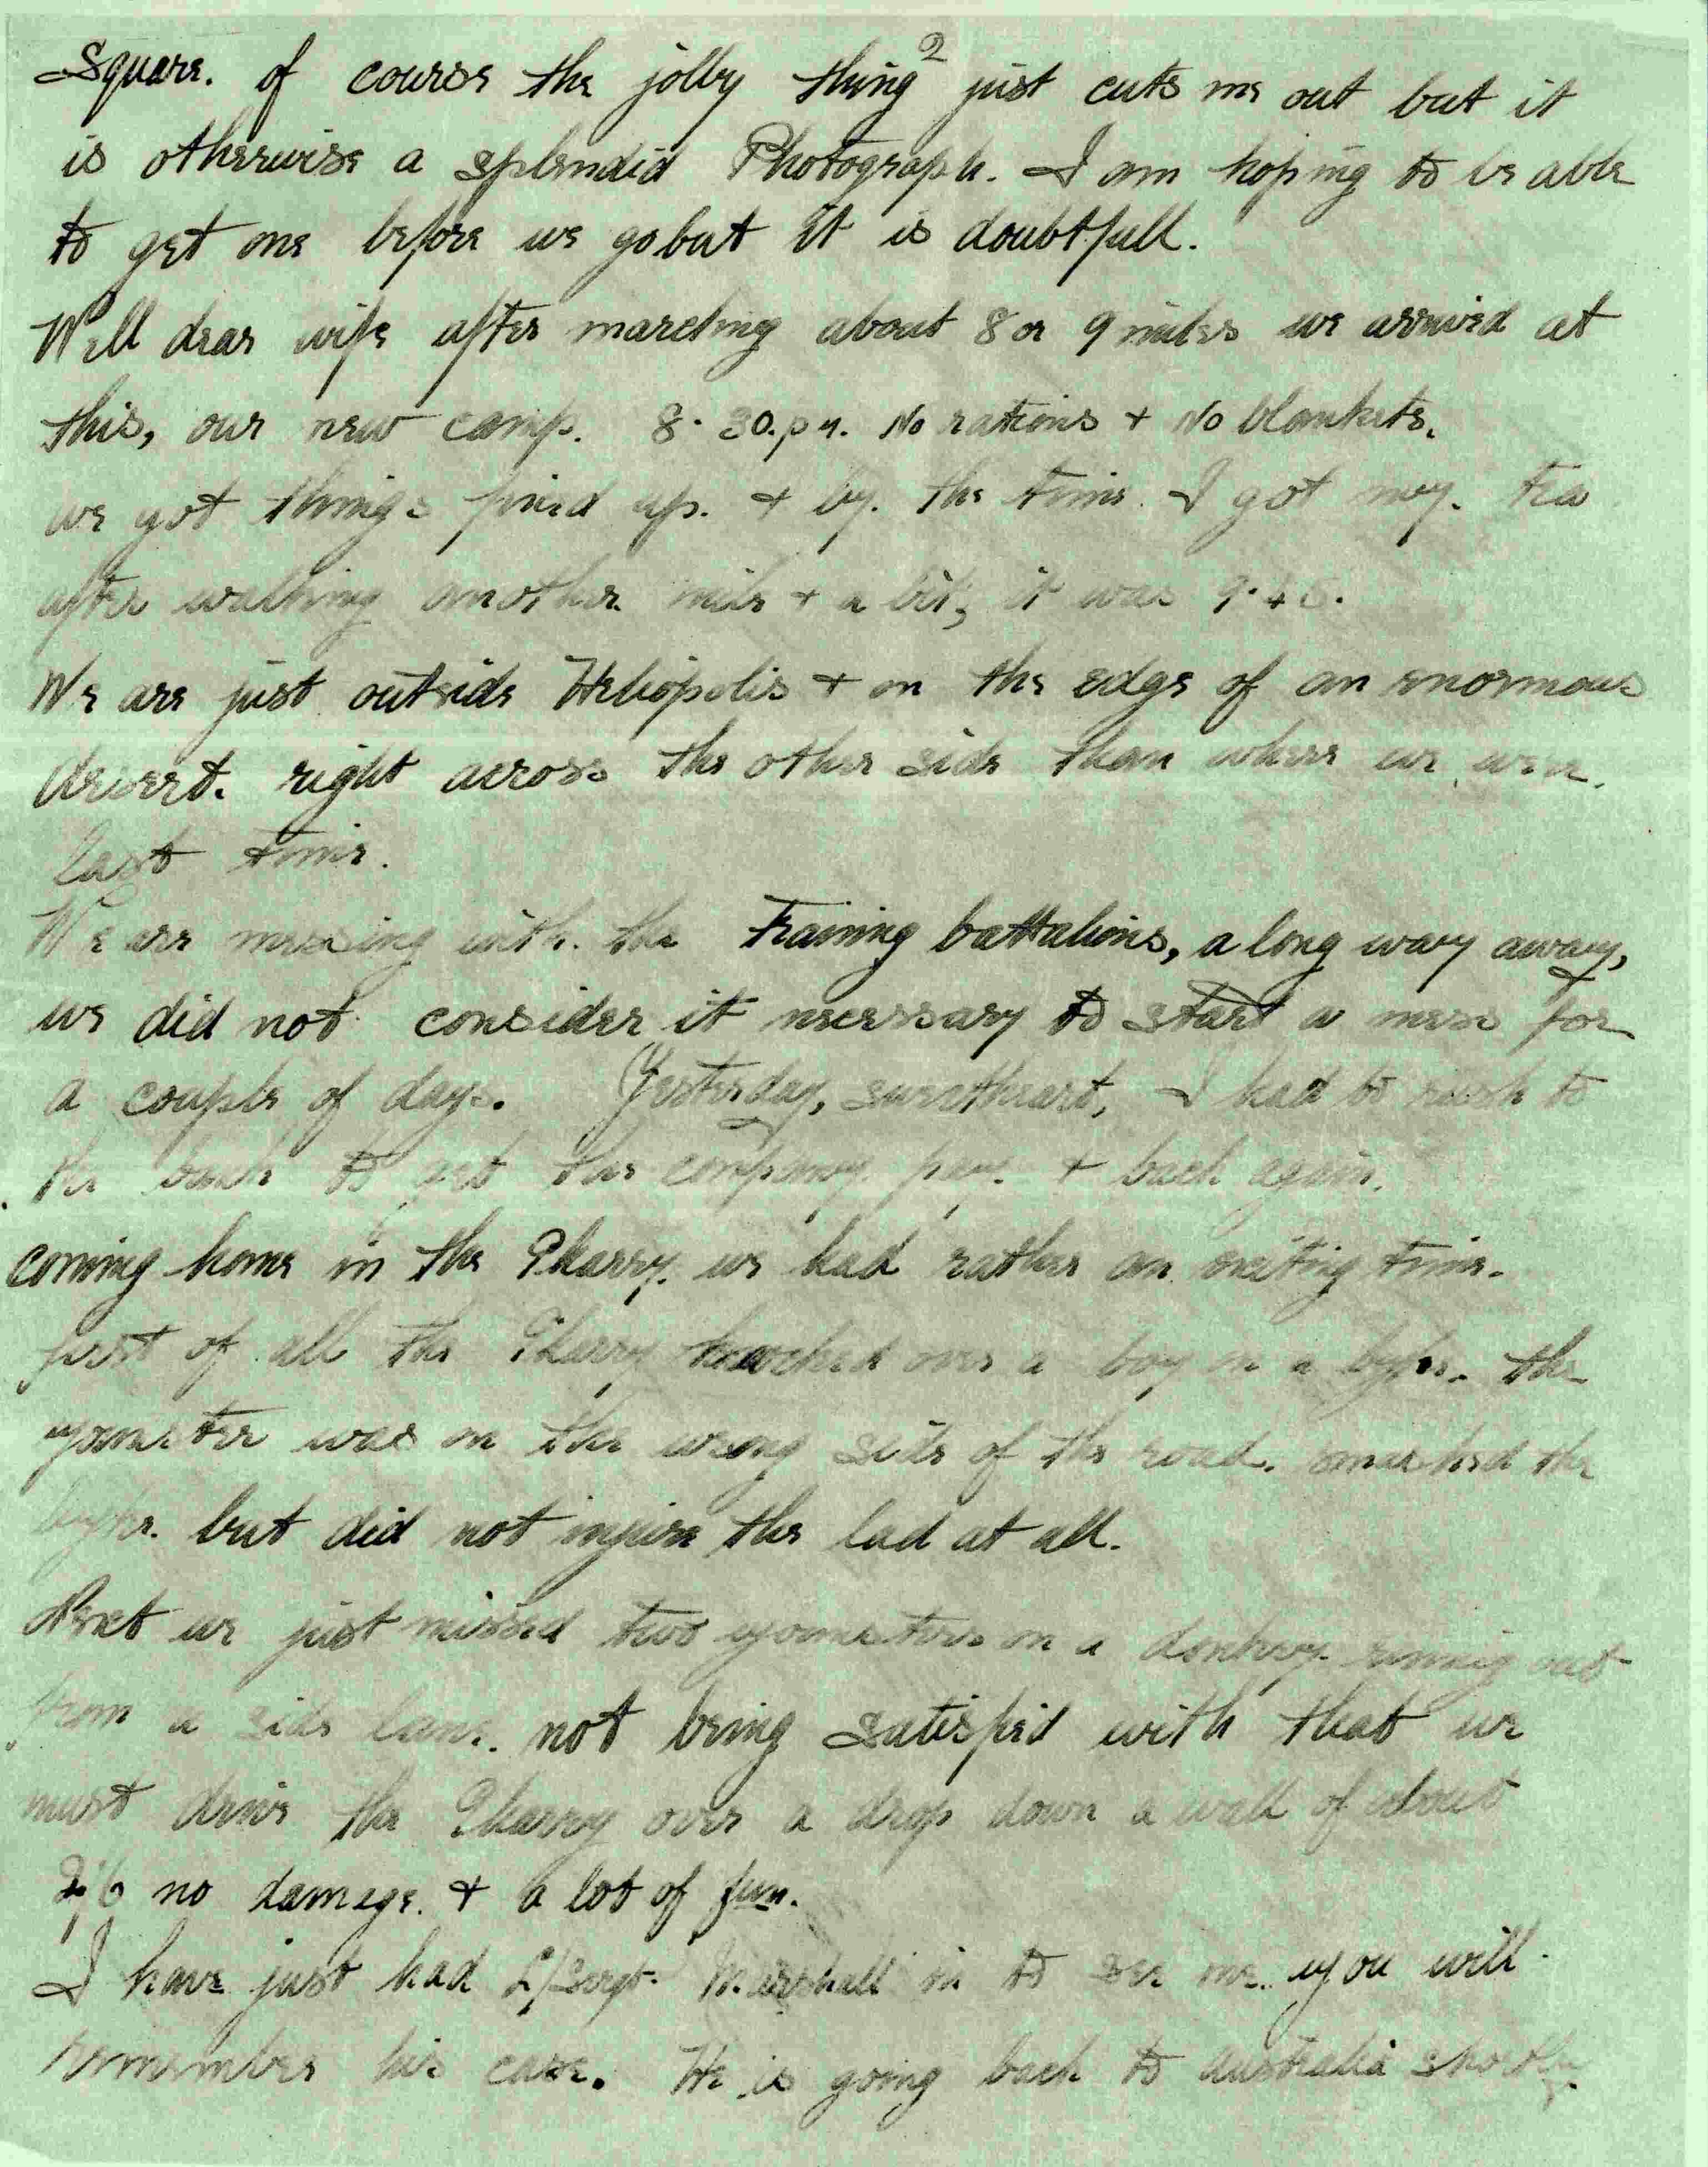 2
Square. of course the jolly thing just cuts me out but it
is otherwise a splendid Photograph. I am hoping to be able
to get one before we go but It is doubtfull.
Well dear wife after marching about 8 or 9 miles we arrived at
this, our new camp. 8.30.p.m. No rations + No blankets.
we got things fixed up. + by. the time. I got my. Tea
after walking another mile + a bit, it was 9.45.
We are just outside Heliopolis + on the edge of an enormous
desert. right across the other side than where we were.
last time.
We are messing with. the Training battalions, a long way away,
we did not consider it necessary to start a mess for
a couple of days. Yesterday, sweetheart, I had to rush to
the bank to get the company pay. + back again.
coming home in the Gharry. we had rather an exciting time.
first of all the Gharry knocked over a boy on a byke. the
youngster was on the wrong side of the road. smashed the
byke. but did not injure the lad at all.
Next we just missed two youngsters on a donkey. running out
from a side lane. not being satisfied with that we
must drive the Gharry over a drop down a wall of about
2/6 no damage. + a lot of fun.
I have just had L/Sergt. Marshall in to see me. you will
remember his case. He is going back to Australia shortly.